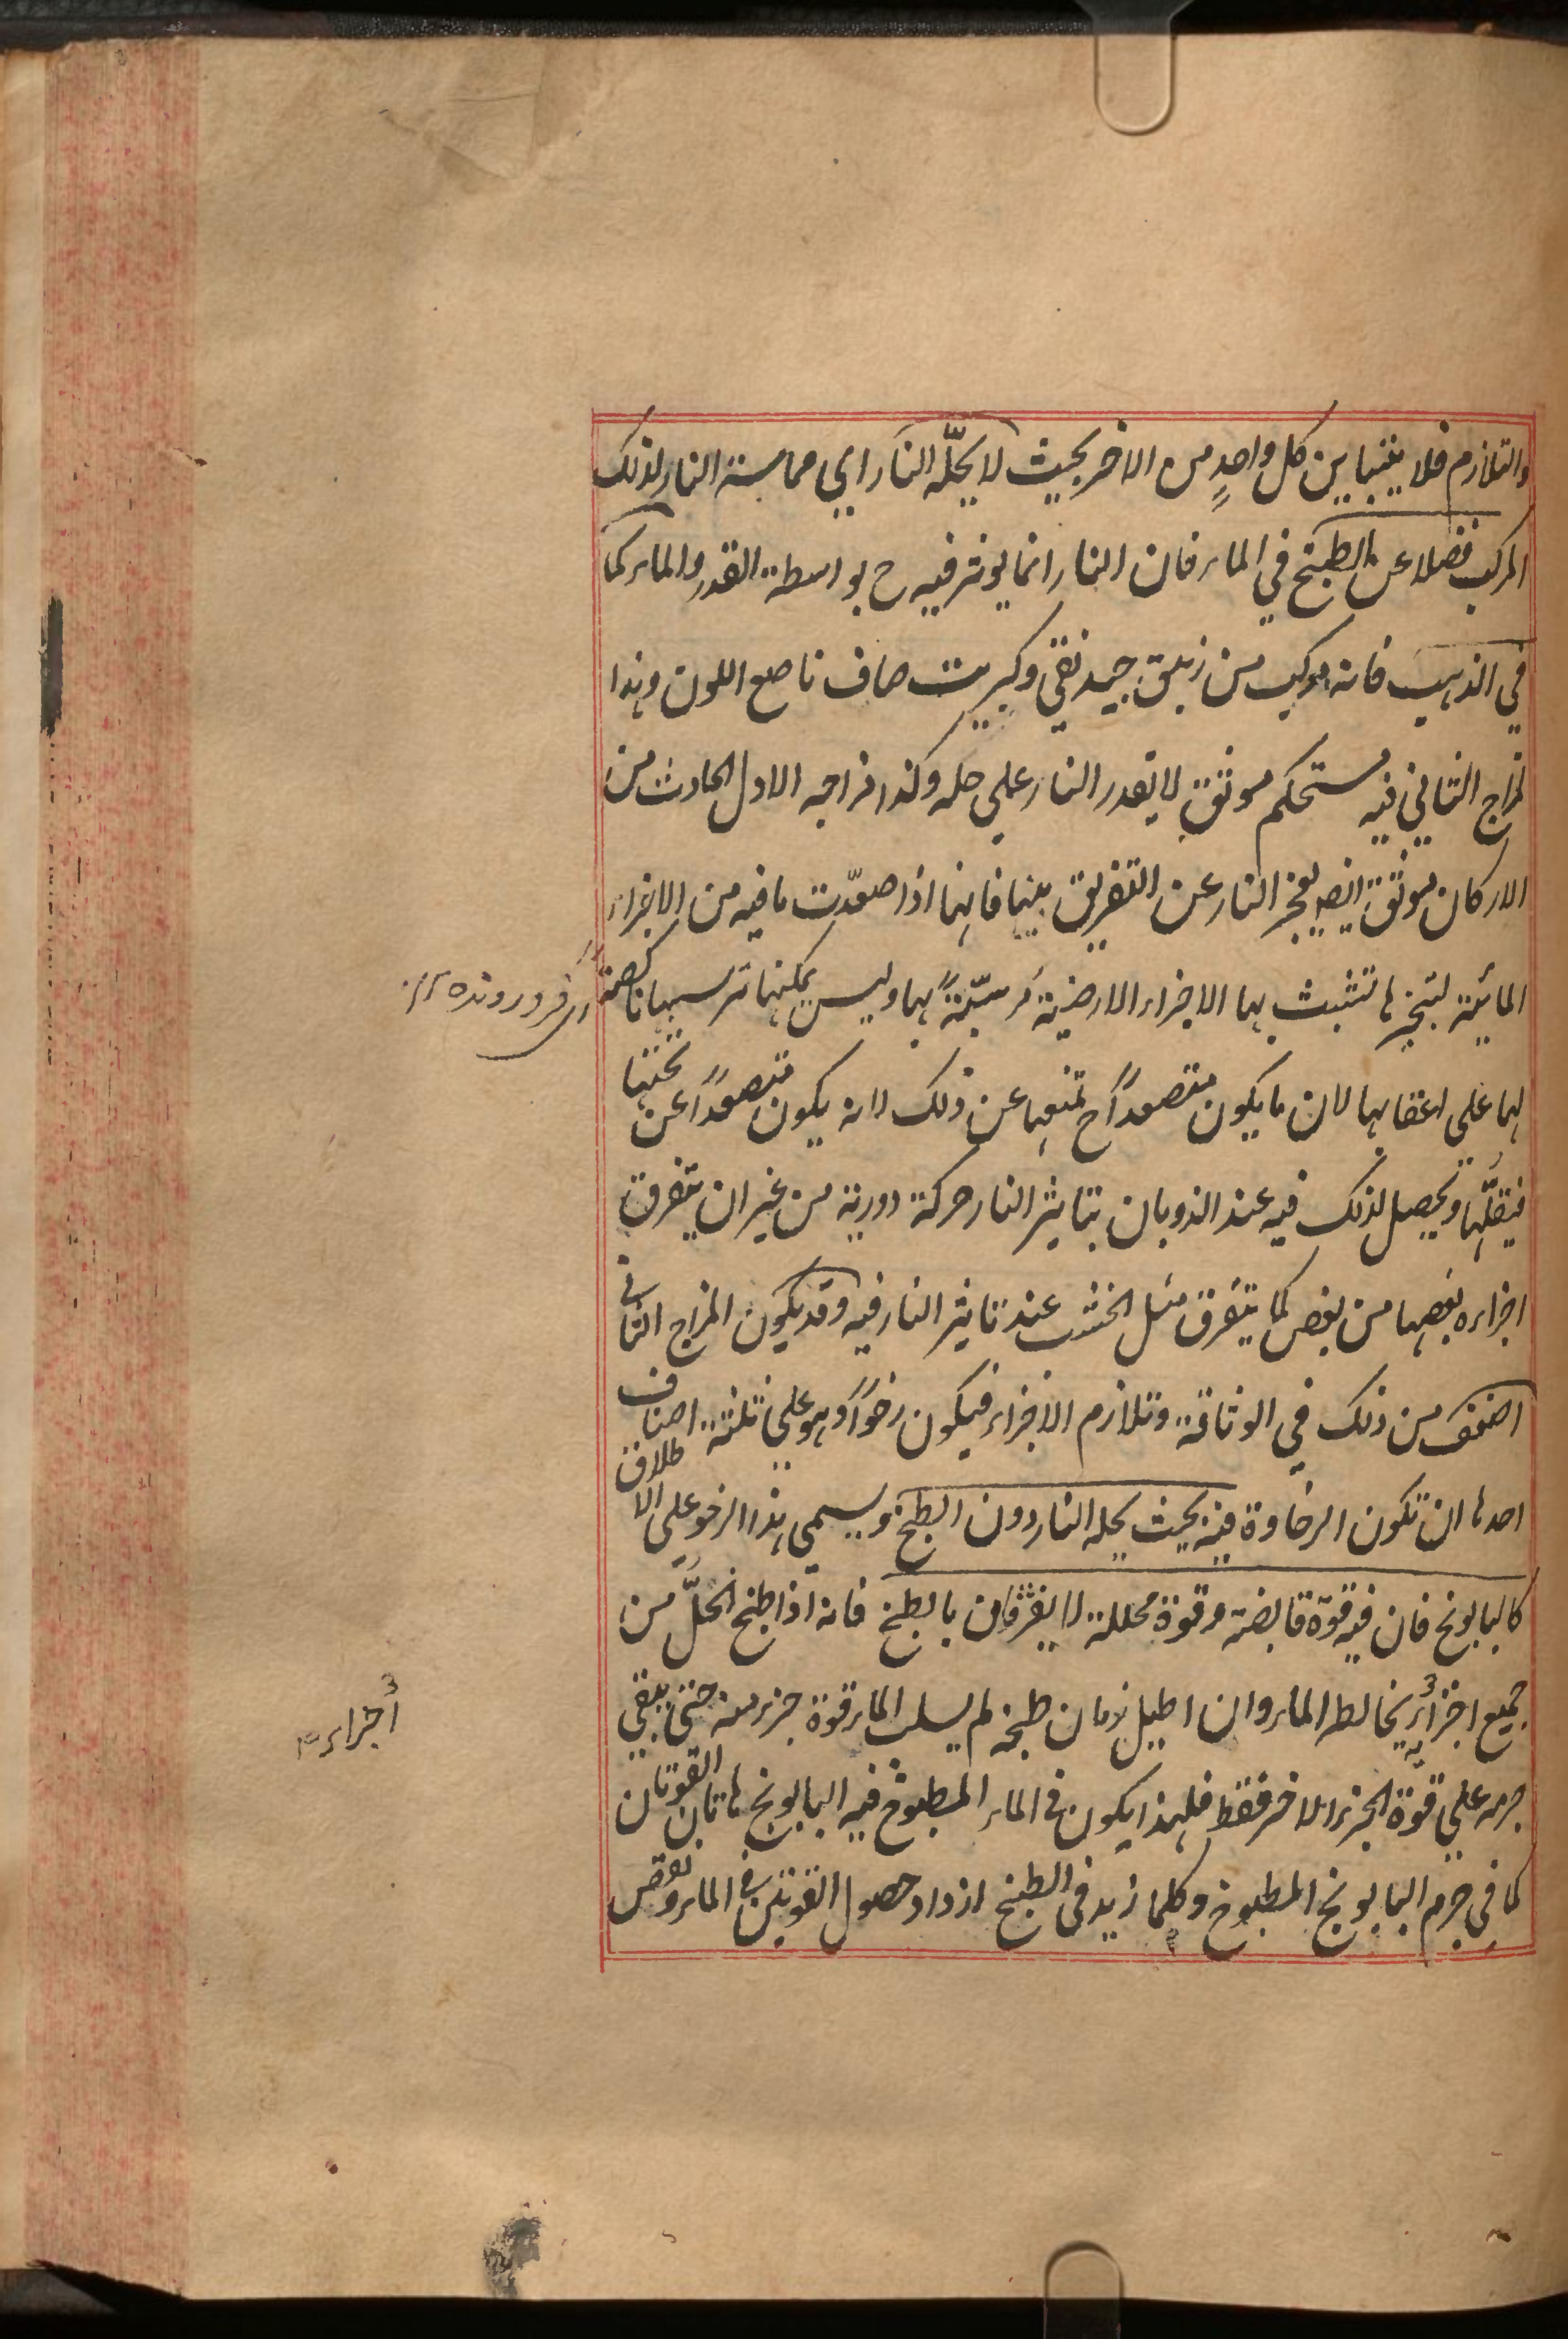 والتلازم فلا يتباين كل واحدٍ من الاخر بحيث لا يحلّه النار اي مماسة النار لذلك
المركب فضلا عن الطبخ في الماء فان النار انما يوثر فيه ح بواسطة القدر والماء كما
في الذهب فانه مركب من زيبق جيد نقي وكبريت صاف ناصع اللون وهذا
المزاج الثاني فيه مستحكم موثق لا تقدر النار علي حله وكذا مزاجه الاول الحادث من
الاركان موثق ايضا يعجز النار عن التفريق بينها فانها اذا صعّدت ما فيه من الاجزاء
المائية لتبخرها تشبث بها الاجزاء الارضية مرسّبةً بها وليس يمكنها ترسيبها ناكصة
اي فرو رونده ١٢
لها علي اعقابها لان ما يكون متصعداً ح تمنعها عن ذلك لانه يكون متصعداً عن تحتها
فيقلّها ويحصل لذلك فيه عند الذوبان بتاثير النار حركة دورية من غير ان يتفرق
اجزاءه بعضها من بعض كما يتفرق مثل الخشب عند تاثير النار فيه وقد يكون المزاج الثاني
اضعف من ذلك في الوثاقة وتلازم الاجزاء فيكون رخواً وهو علي ثلثة اصناف
احدها ان تكون الرخاوة فيه بحيث يحله النار دون الطبخ ويسمي هذا الرخو علي الاطلاق
كالبابونج فان فيه قوة قابضة وقوة محللة لا يفترقان بالطبخ فانه اذا طبخ انحلّ من
جميع اجزائه يخالط الماء وان اطيل زمان طبخه لم يسلب الماء قوة جزء منه حتى يبقي
أجزاء ٣
جرمه علي قوة الجزء الاخر فقط فلهذا يكون في الماء المطبوخ فيه البابونج هاتان القوتان
كما في جرم البابونج المطبوخ وكلما زيد في الطبخ ازداد حصول القوتين في الماء ونقص